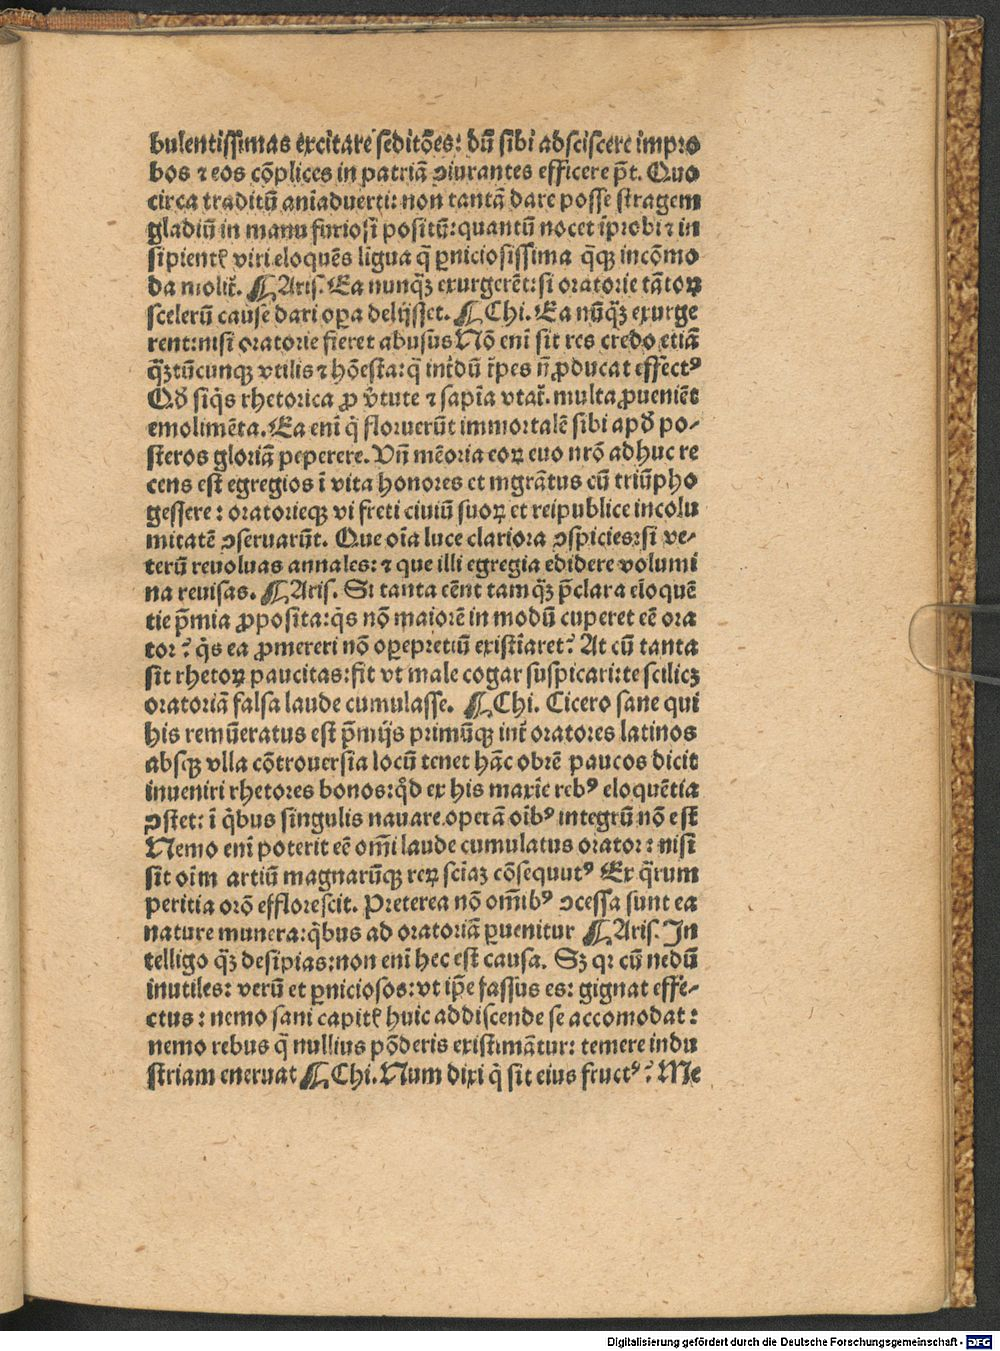 bulentissimas excitare seditões: dũ sibi adsciscere impro
bos ⁊ eos cõplices in patriã ↄiurantes efficere p̃t. Quo
circa traditũ anĩaduerti: non tantã dare posse stragem
gladiũ in manu furiosi positũ: quantũ nocet ĩprobi ⁊ in
sipientꝭ viri eloquẽs ligua q̃ ꝑniciosissima q̃qꝫ incõmo
da molit᷑. ¶ Aris. Ea nunq̃ꝫ exurgerẽt: si oratorie tãtoꝝ
scelerũ cause dari oꝑa delijsset. ¶ Chi. Ea nũq̃ꝫ exurge
rent: nisi oratorie fieret abusus Nõ enĩ sit res credo etiã
q̃ꝫtũcunqꝫ vtilis ⁊ hõesta: q̃ inťdũ ťpes ñ ꝓducat effectꝰ
Qđ siq̃s rhetorica ꝓ ṽtute ⁊ sapĩa vtat᷑. multa ꝓueniẽt
emolimẽta. Ea enĩ q̃ floruerũt immortalẽ sibi apđ po-
steros gloriã peperere. Vñ mẽoria eoꝝ euo nrõ adhuc re
cens est egregios ĩ vita honores et mgrãtus cũ triũpho
gessere: oratorieqꝫ vi freti ciuiũ suoꝝ et reipublice incolu
mitatẽ ↄseruarũt. Que oĩa luce clariora ↄspicies: si ve-
terũ reuoluas annales: ⁊ que illi egregia edidere volumi
na reuisas. ¶ Aris. Si tanta cẽnt tamq̃ꝫ p̃clara eloquẽ
tie p̃mia ꝓposita: q̃s nõ maiorẽ in modũ cuperet eẽ ora
tor? q̃s ea ꝓmereri nõ oꝑepretiũ existĩaret? At cũ tanta
sit rhetoꝝ paucitas: fit vt male cogar suspicari: te scilicꝫ
oratoriã falsa laude cumulasse. ¶ Chi. Cicero sane qui
his remũeratus est p̃mijs primũqꝫ int᷑ oratores latinos
absqꝫ vlla cõtrouersia locũ tenet hãc obrẽ paucos dicit
inueniri rhetores bonos: q̊d ex his maxĩe rebꝰ eloquẽtia
ↄstet: ĩ q̃bus singulis nauare operã oĩbꝰ integrũ nõ est
Nemo enĩ poterit eẽ om̃i laude cumulatus orator: nisi
sit oĩm artiũ magnarũqꝫ reꝝ sciãꝫ cõsequutꝰ Ex q̃rum
peritia orõ efflorescit. Preterea nõ om̃ibꝰ ↄcessa sunt ea
nature munera: q̃bus ad oratoriã ꝑuenitur ¶ Aris. In
telligo q̃ꝫ desipias: non enĩ hec est causa. Sꝫ qꝛ cũ nedũ
inutiles: verũ et ꝑniciosos: vt ip̃e fassus es: gignat effe-
ctus: nemo sani capitꝭ huic addiscende se accomodat:
nemo rebus q̃ nullius põderis existimãtur: temere indu
striam eneruat ¶ Chi. Num dixi q̃ sit eius fructꝰ? Me
Digitalisierung gefördert durch die Deutsche Forschungsgemeinschaft - DFG